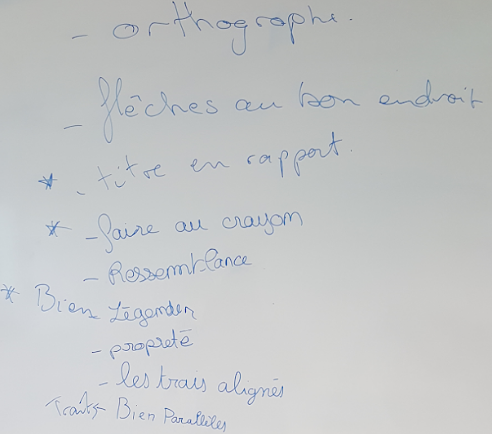 - orthographe.
- flêches au bon endroit
* - titre en rapport.
* - faire au crayon
- Ressemblance
* Bien Légender
- propreté
- les trais alignés
Traits Bien Parallèles